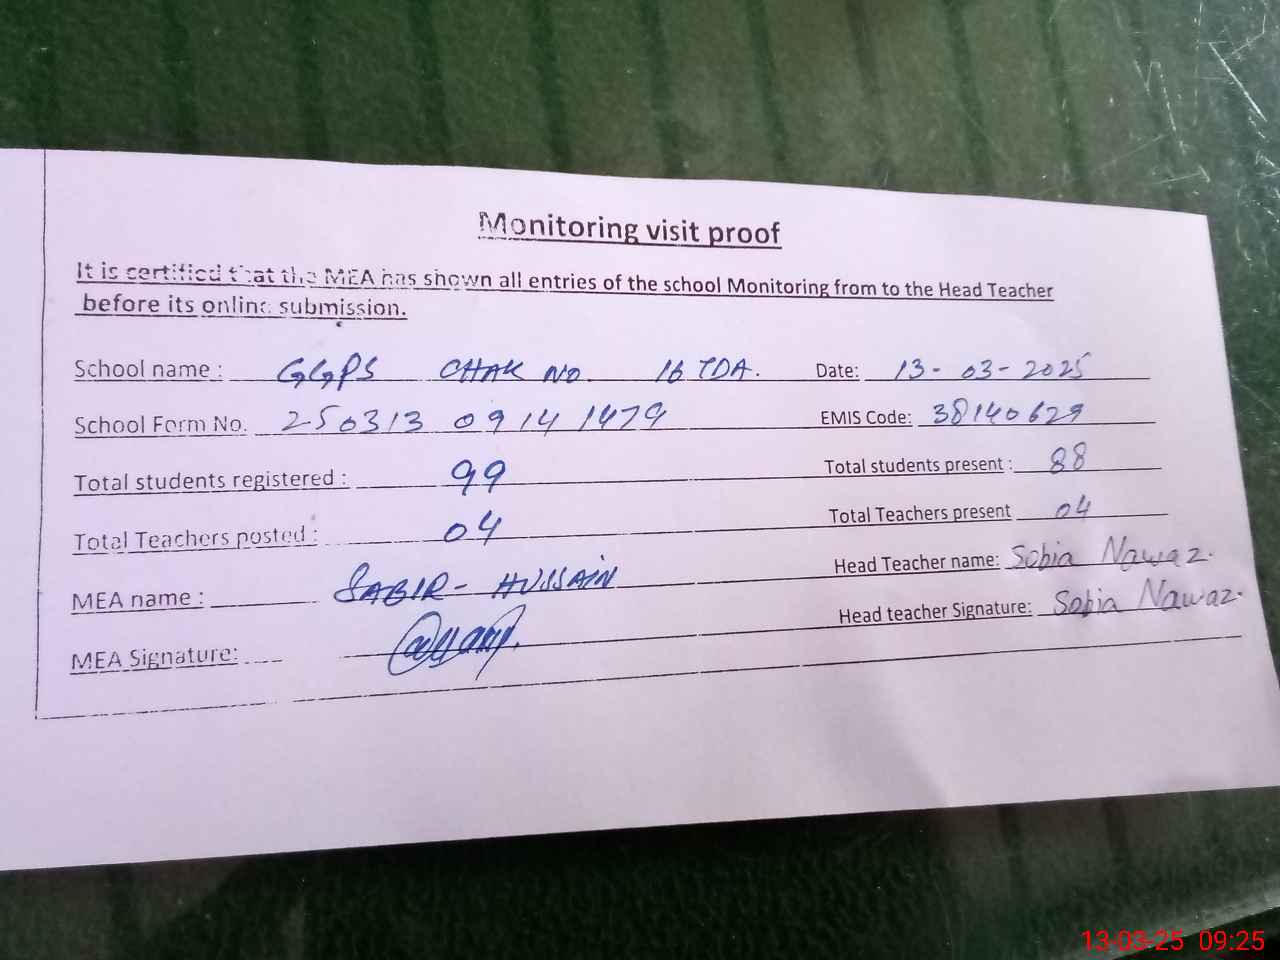 Monitoring visit proof
It is certified that the MEA has shown all entries of the school Monitoring from to the Head Teacher
before its online submission.
School name : GGPS CHAK NO. 16 TDA. Date: 13-03-2025
School Form No. 250313 09 14 1479 EMIS Code: 38140629
Total students registered : 99 Total students present : 88
Total Teachers posted : 04 Total Teachers present 04
MEA name : SABIR-HUSSAIN Head Teacher name: Sobia Nawaz.
MEA Signature: Head teacher Signature: Sobia Nawaz.
13-03-25 09:25